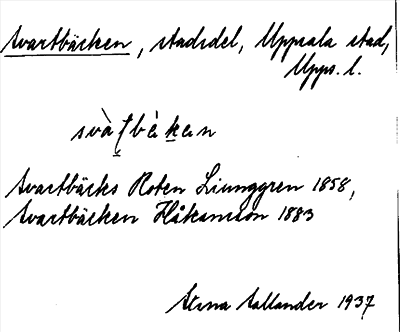 Svartbäcken, stadsdel, Uppsala stad,
Upps. l.
Svartbäcks Roten Liunggren 1858,
Svartbäcken Håkansson 1883
Stina Sallander 1937